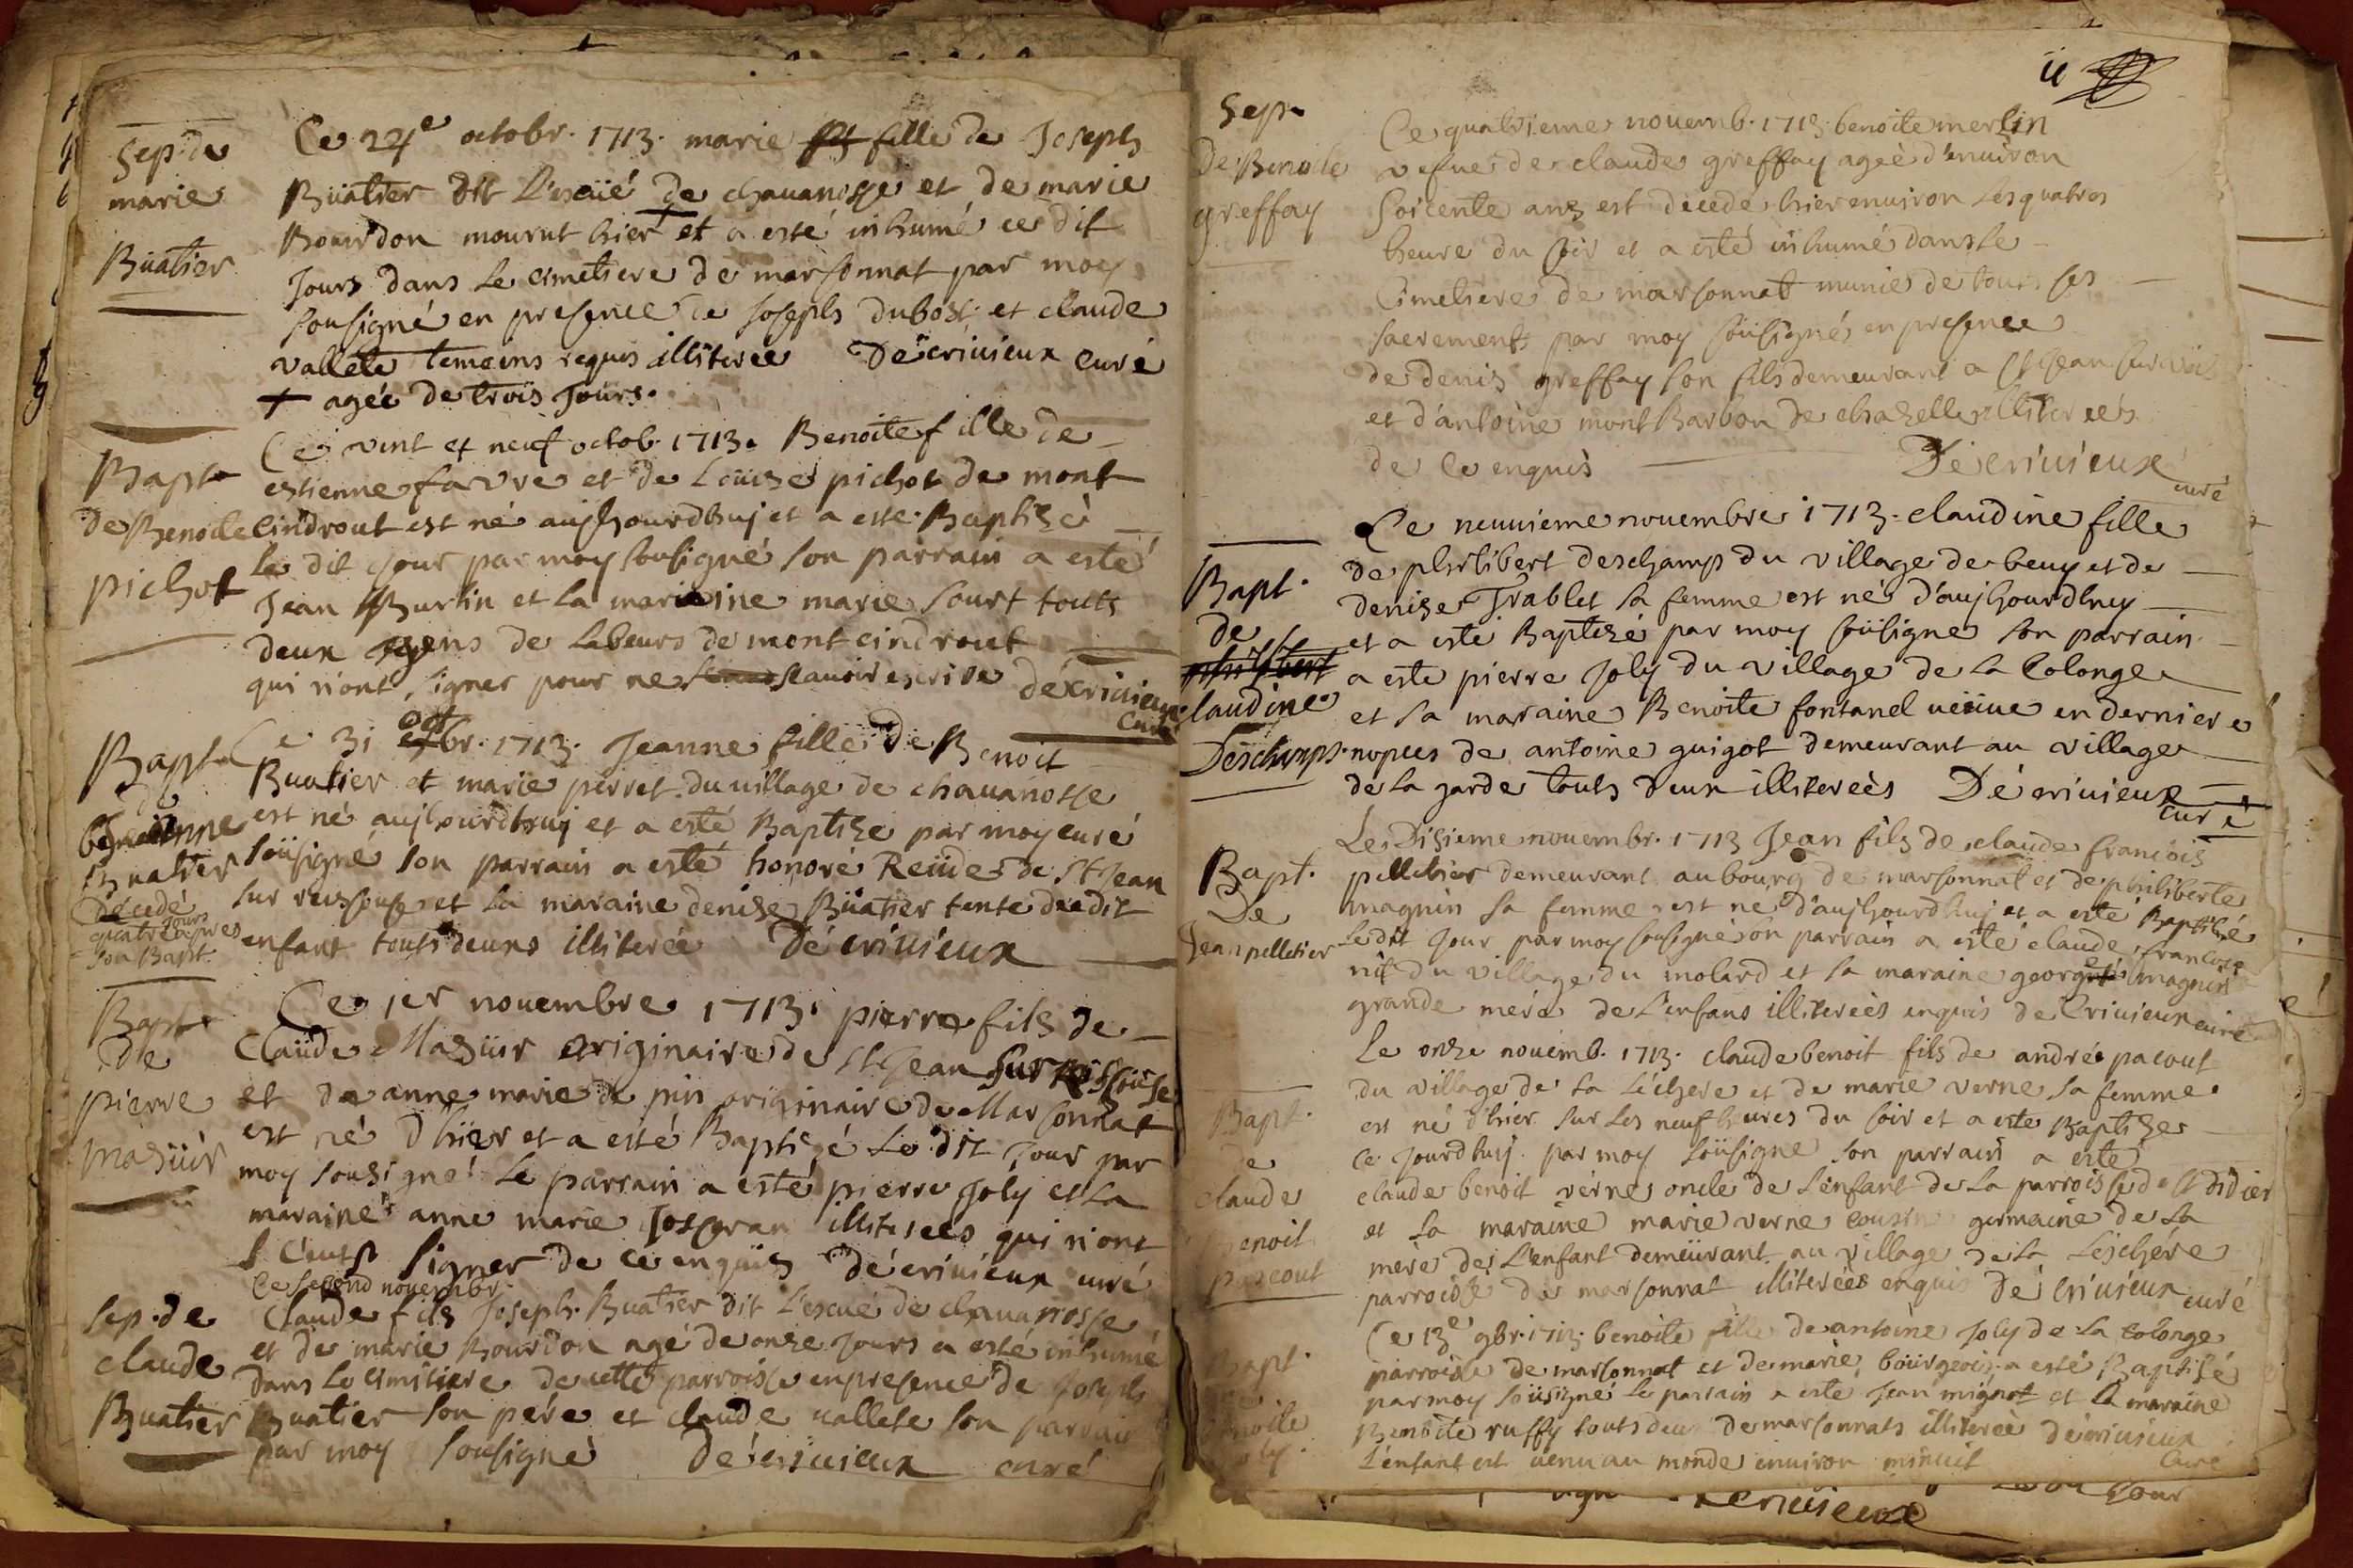 Sep. de
marie
Buatier
Ce 24e octobr. 1713. marie fille de Joseph
Büatier dit L'escüé de chauanosse et de marie
Bourdon mourut hier + et a esté inhumé ce dit
Jours dans le cimetiere de marsonnat par moy
sousigné en presence de Joseph dubost et claude
vallete temoins requis illiterée Décriuieux curé
+ agée de trois Jours.
Bapt
de Benoite
pichot
Ce vint et neuf octob. 1713. Benoite fille de
estienne favre et de Loüise pichot de mont
cindrout est né aujhourdhuj et a esté Baptizé
le dit jour par moy sousigné son parrain a esté
Jean Burtin et la maraine marie sourt touts
deux gens de labeurs de mont cindrout
qui n'ont signer pour ne scauoir escrire décriuieux
curé
Bapt
de
Jeanne
Buatier
Décedé
quatre jours apres
son Bapt.
Ce 31 octbr. 1713. Jeanne fille de Benoit
Buatier et marie perret du uillage de chauanosse
est né aujhourdhuj et a esté Baptize par moy curé
soüsigné son parrain a esté honoré Reüde de St Jean
sur reissouse et la maraine denize Büatier tente du dit
enfant touts deuxs illiterée Décriuieux
Bapt
De
pierre
mazüir
Ce jer nouembre 1713. pierre fils de
Claüde Mazüir originaire de St Jean sur reissouse
et de anne marie du pin originaire de Marsonnat
est né d'hier et a esté Baptizé le dit jour par
moy sousigné le parrain a esté pierre Joly et la
maraine anne marie illiterees qui n'ont
signer de ce enquis décriuieux curé
Sep. de
claude
Buatier
Ce second nouembr.
Claude fils Joseph Buatier dit L'escué de chauanosse
et de marie Bourdon agé de onze jours a esté inhumé
dans le cimitiere de cette parroisse en presence de Joseph
Buatier son pere et claude uallete son parrain
par moy sousigné Décriuieux curé
Sep.
De Benoite
greffay
Ce quatrieme nouemb. 1713. benoite merlin
vefue de claude greffay ageè d'enuiron
soicente ans est decedé hier enuiron les quatres
heure du soir et a esté inhumé dans le
Cimetiere de marsonnat munie de tous ses
sacrements par moy soüsigné en presence
de denis greffay son fils demeurant a St Jean sur
et d'antoine mont Barbon de chazelle illitereés
de ce enquis Décriuieux
curé
Bapt.
de
philibert
claudine
Deschamps.
Ce neuuieme nouembre 1713. claudine fille
de philibert deschamps du village de beuy et de
denize Trablet sa femme est né d'aujhourdhuy
et a esté Baptizé par moy soüsigne son parrain
a esté pierre Joly du village de la Colonge
et sa maraine Benoite fontanel ueüue en derniere
nopces de antoine guigot demeurant au village
de la garde touts deux illitereès Décriuieux
curé
Bapt.
De
Jean pelletier
Le Disieme nouembr. 1713 Jean fils de claude francois
pelletier demeurant au bourg de marsonnat et de philiberte
magnin sa femme est né d'aujhourdhuj et a esté Baptisé
le dit jour par moy sousigné son parrain a esté claude francois
nit du village du molard et sa maraine george magnin
grande mere de l'enfans illitereès enquis de Criuieux curé
Bapt.
de
claude
Benoit
pacout
Le onze nouemb. 1713. claude benoit fils de andrée pacout
du village de la Léchere et de marie verne sa femme
est né d'hier sur les neuf heures du soir et a esté Baptizé
ce jourdhuj par moy soüsigne son parrain a esté
claude benoit verne oncle de l'enfant de la parroisse de St didier
et la maraine marie verne cousine germaine de la
mere de L'enfant demeürant au village de la Leschére
parroisse de marsonnat illitereés enquis Décriuieux curé
Bapt.
Ce 13e 9br. 1713. benoite fille de antoine Joly de la colonge
parroisse de marsonnat et de marie bourgeois a esté Baptisé
par moy soüsigné le parrain a esté Jean mignot et la maraine
Benoite ruffy touts deux de marsonnats illiteree décriuieux
L'enfant est uenu au monde enuiron minuit curé